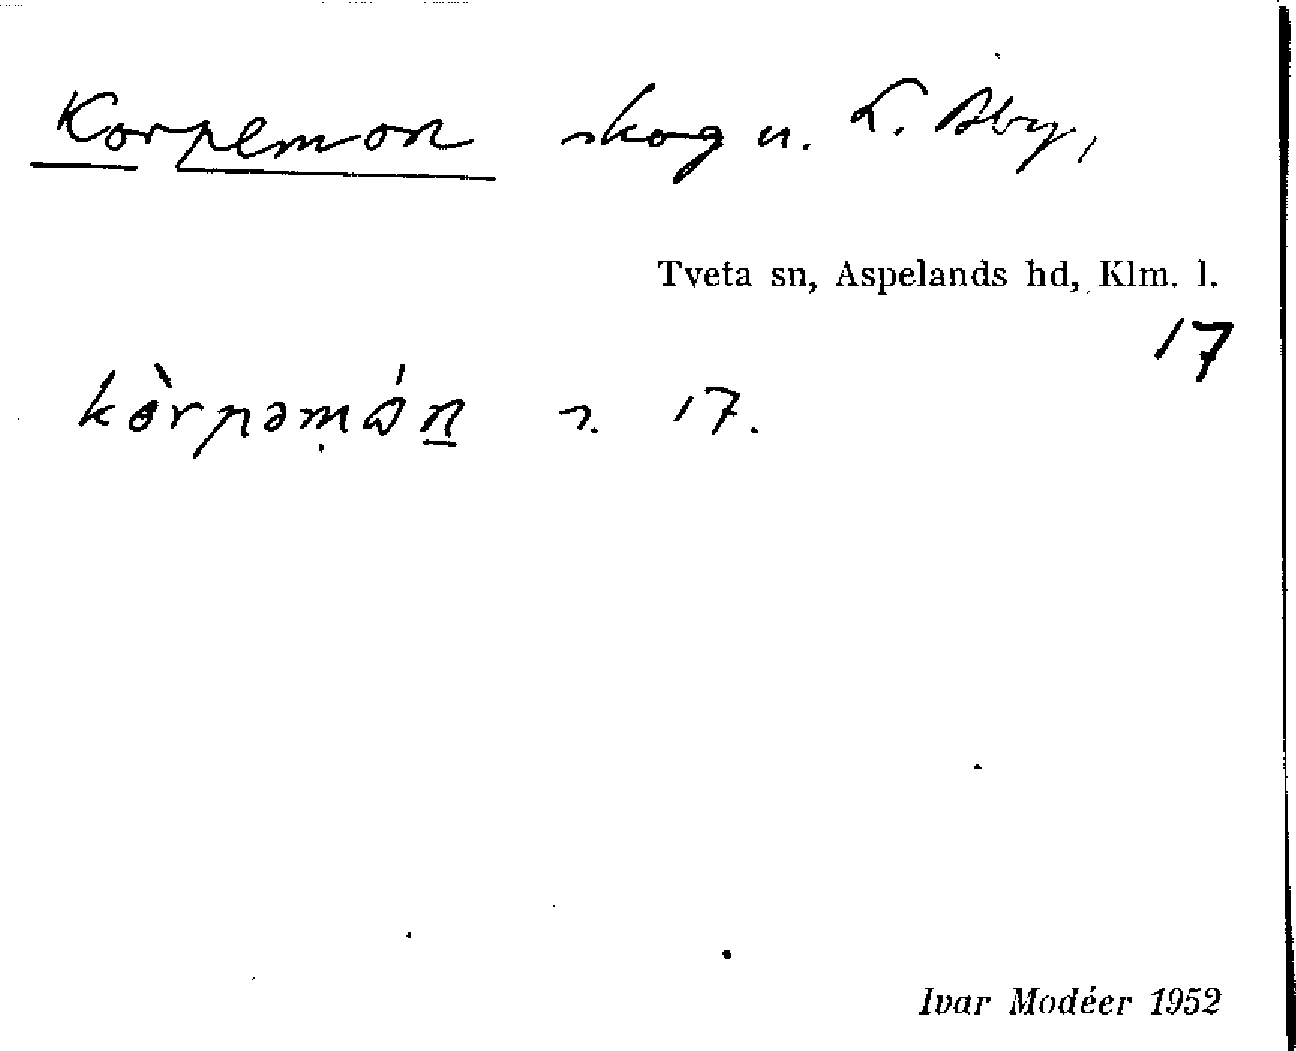 Korpemon skog u. L. Åby,
Tveta sn, Aspelands hd, Klm. l.
17
kòrpəmǻn s. 17.
Ivar Modéer 1952